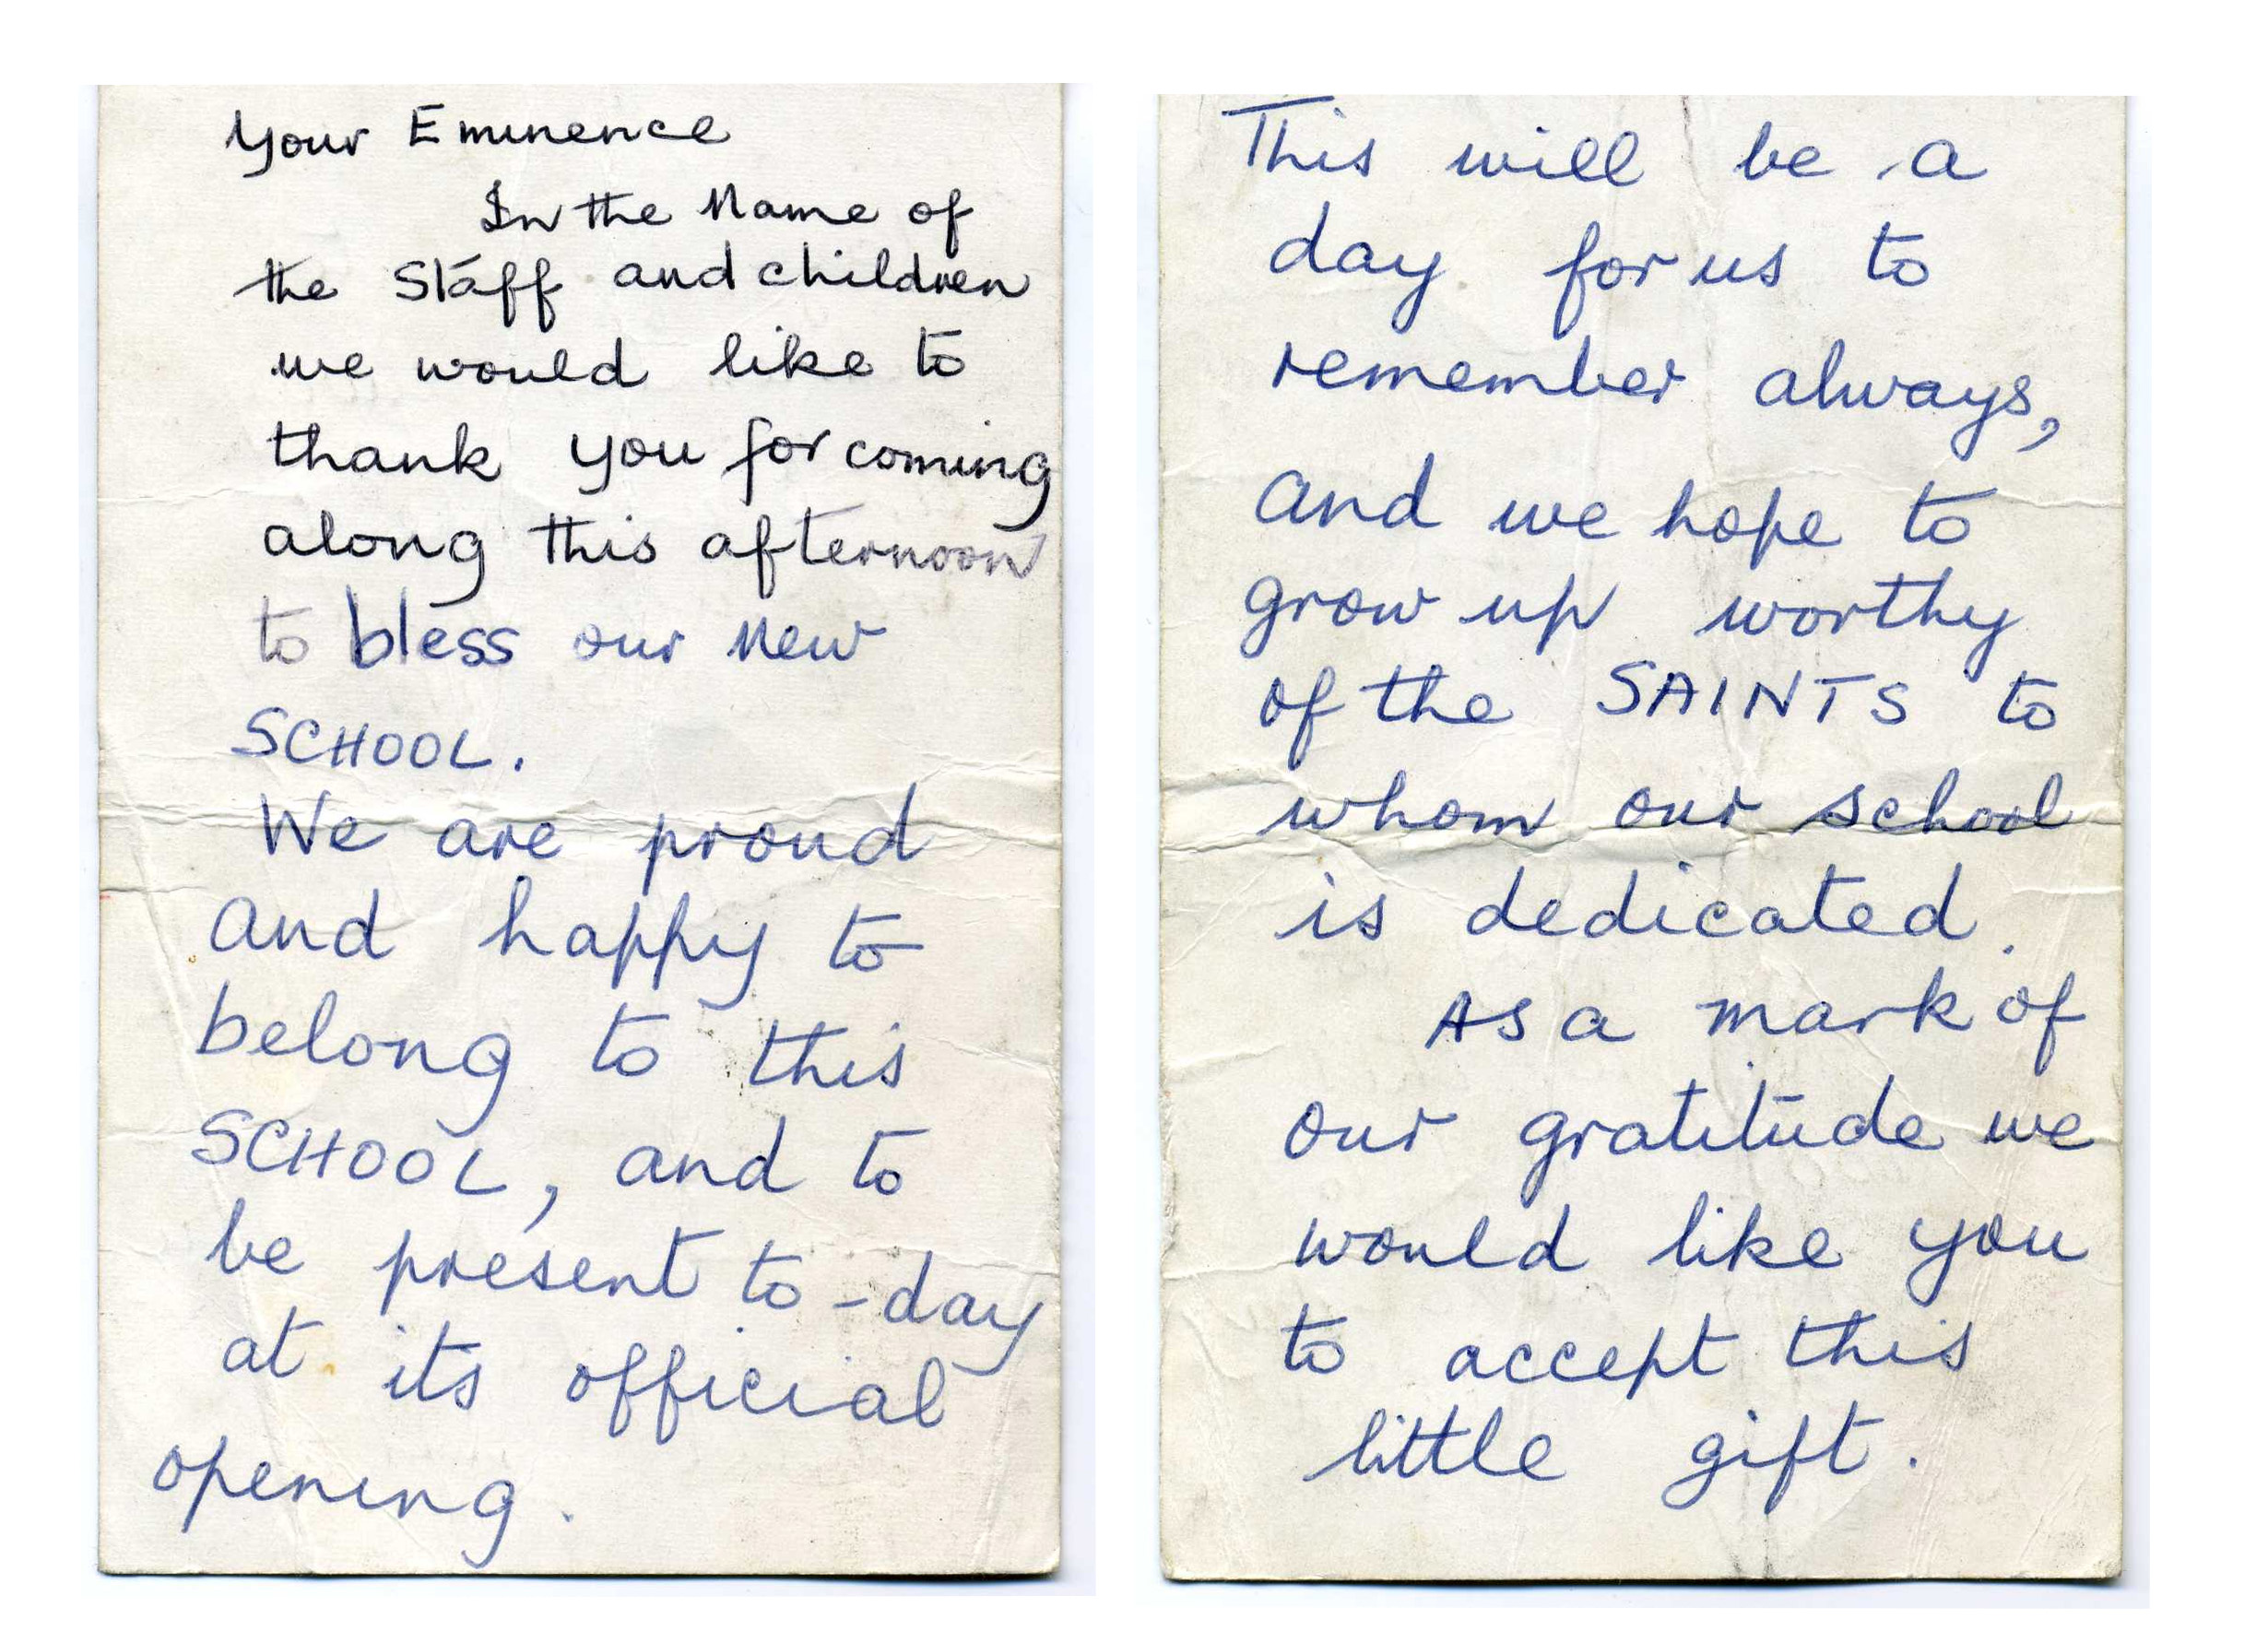 Your Eminence
In the Name of
the Staff and children
we would like to
thank you for coming
along this afternoon
to bless our new
SCHOOL.
We are proud
and happy to
belong to this
SCHOOL, and to
be present to-day
at its official
opening.
This will be a
day for us to
remember always,
and we hope to
grow up worthy
of the SAINTS to
whom our school
is dedicated.
As a mark of
our gratitude we
would like you
to accept this
little gift.